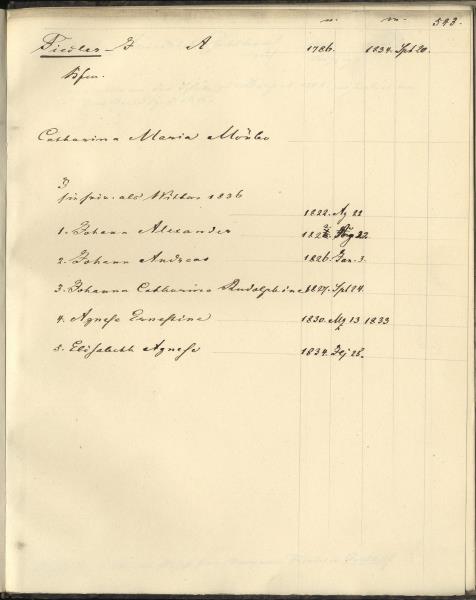 n. m. 543.
Fiedler J A 1786. 1834. Spt 20.
Catharina Maria
als Wittwe 1836
1822. Ag 22
1. Johann Alexander 22
2. Johann Andreas 1826. Jan. 3.
3. Johanna Catharina Rudolphine 1827. Spt 24.
4. Agnese Ernestine 1830. Mz 13 1833
5. Elisabeth Agnese 1834. 28.